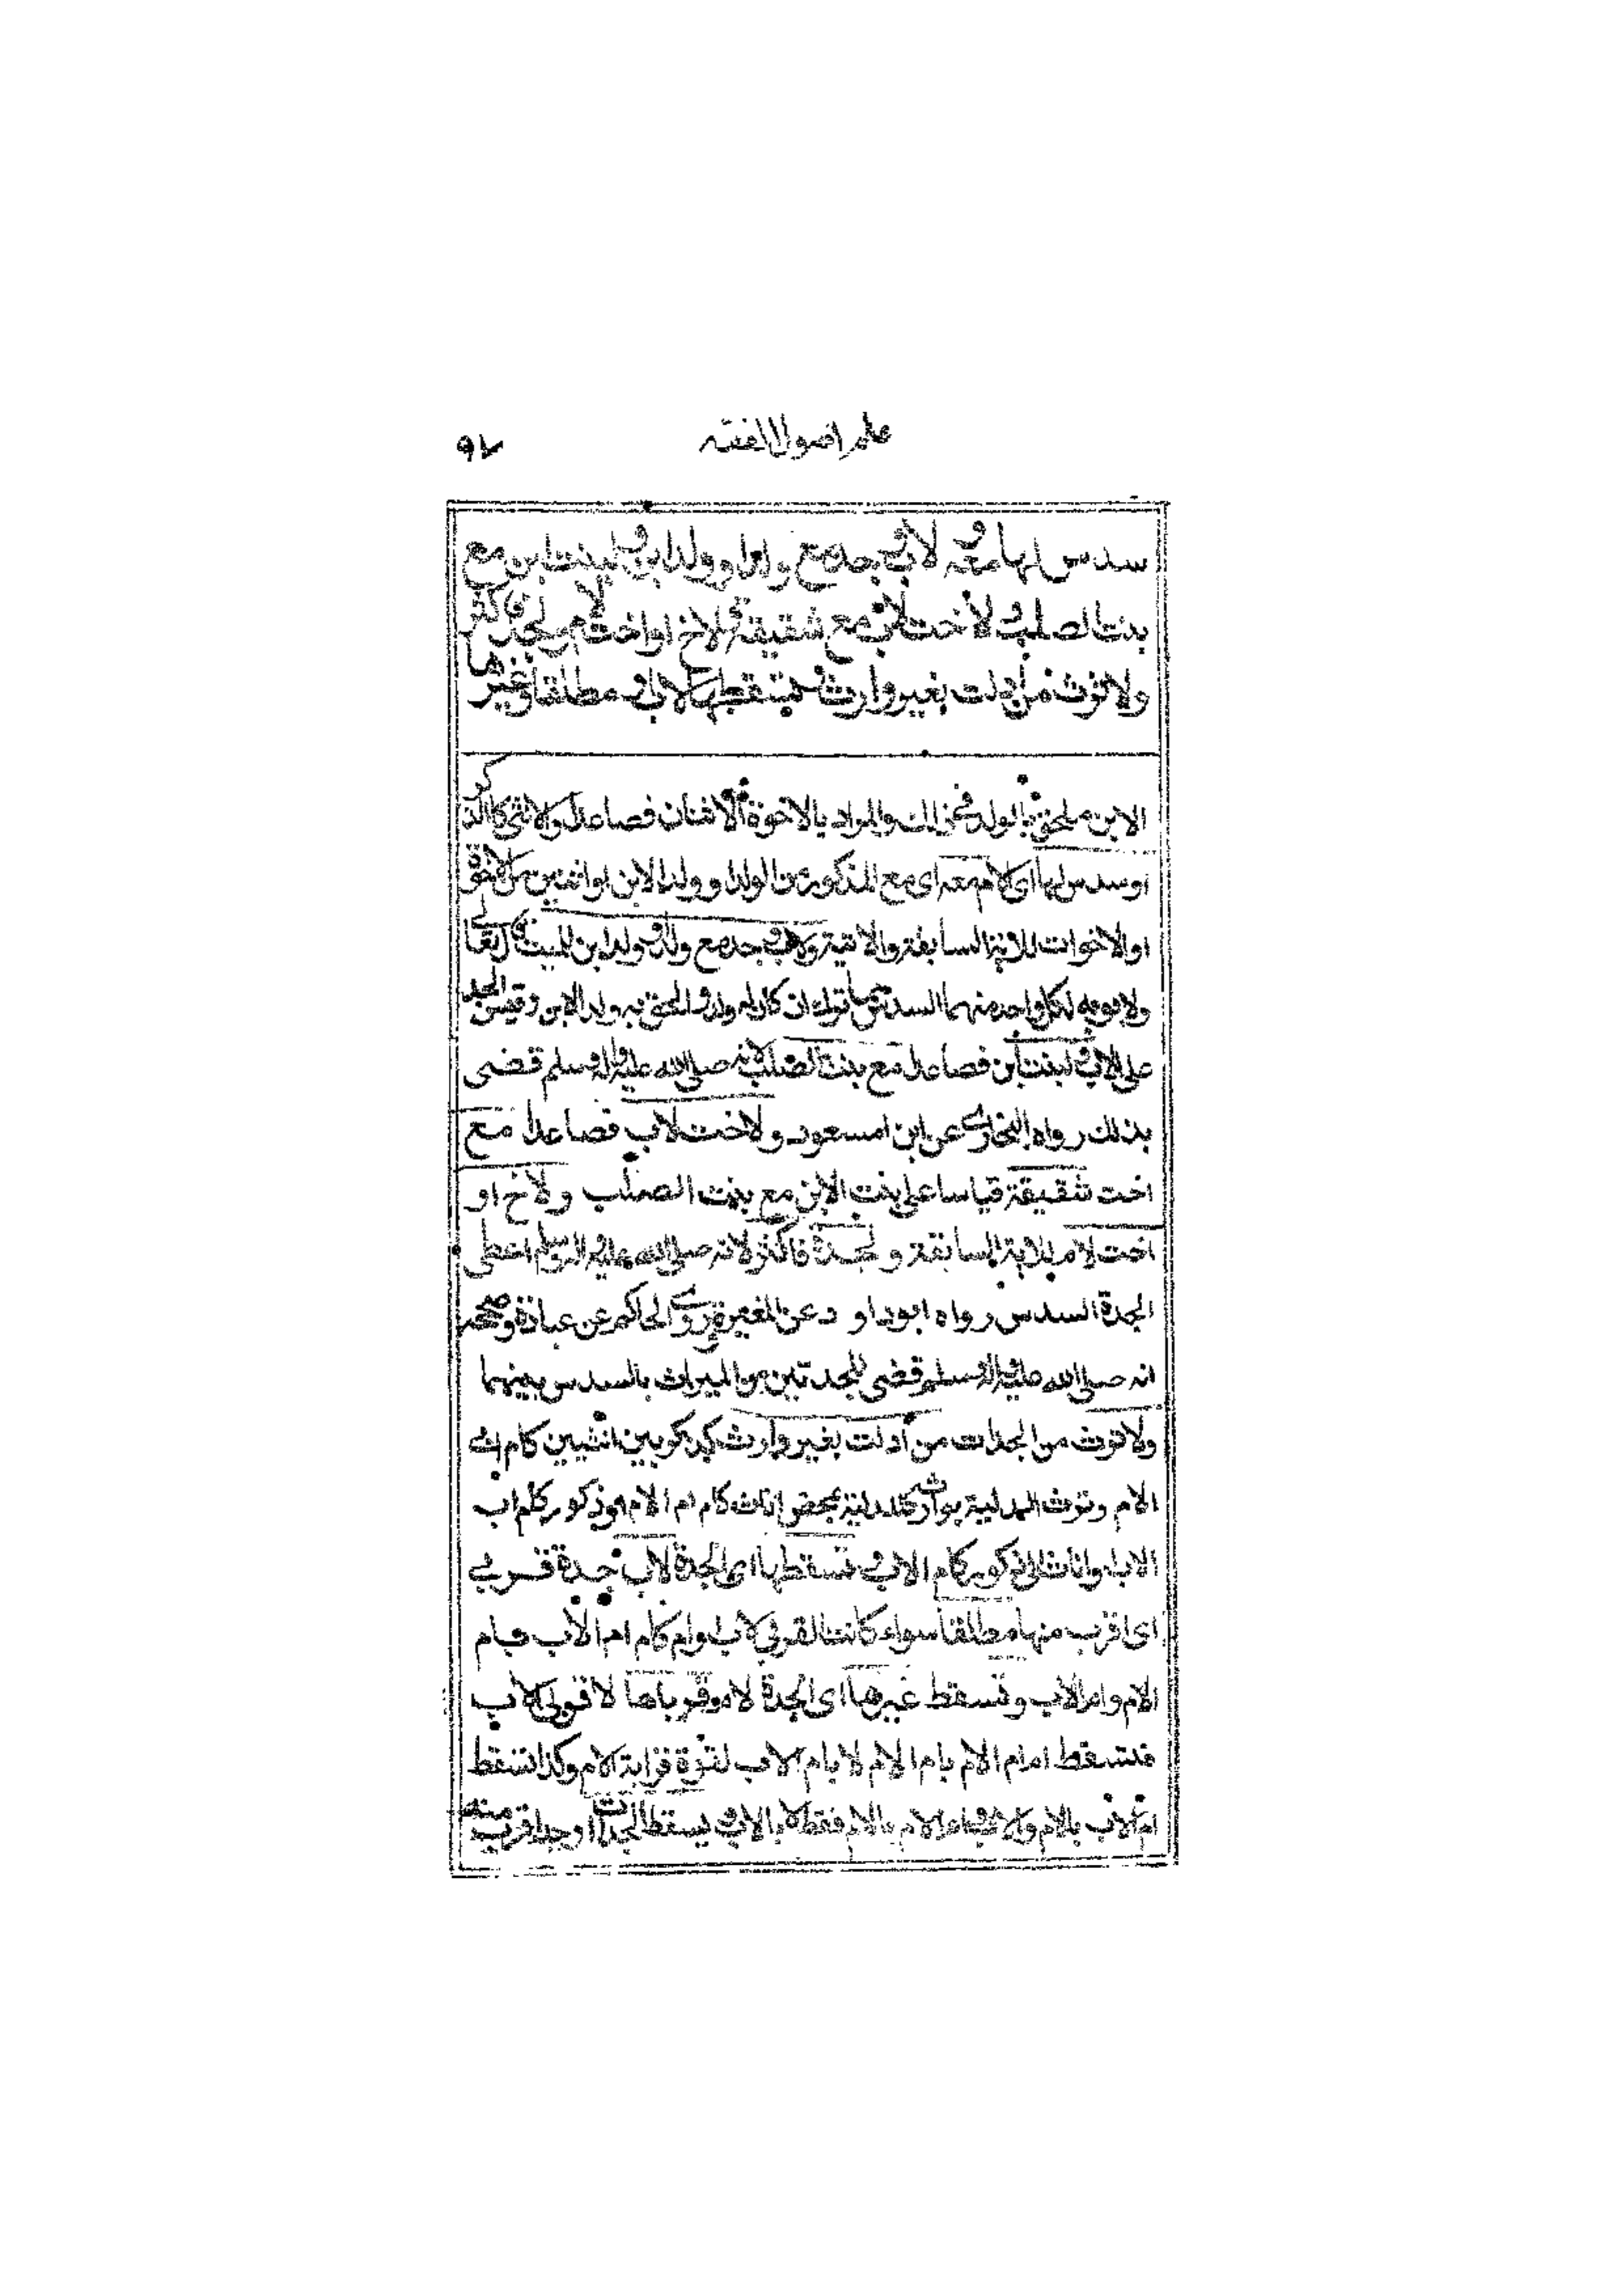 علم اصول الفقه ٩٧
سدس لها معه و لاب وجد مع ولد او ولد ابن و لبنت ابن مع
بنت الصلب و لاخت لاب مع شقيقة و لاخ او اخت لام و لجدة فاكثر
ولا ترث من ادلت بغير وارث وتسقطها لاب قربى مطلقا وغيرها
الابن ملحق بالولد في ذلك والمراد بالاخوة الاثنان فصاعدا والانثى كالذكر
او سدس لها اى للام معه اى مع المذكور من الولد و ولد الابن او اثنين من الاخوة
او الاخوات للاية السابقة والاتية ولاب وجد مع ولد او ولد ابن للميت قال تعالى
ولابويه لكل واحد منهما السدس مما ترك ان كان له ولد والحق به ولد الابن وقيس الجد
على الاب ولبنت ابن فصاعدا مع بنت الصلب لانه صلى الله عليه واله وسلم قضى
بذلك رواه البخارى عن ابن مسعود ولاخت لاب فصاعدا مع
اخت شقيقة قياسا على بنت الابن مع بنت الصلب و لاخ او
اخت لام للاية السابقة و لجدة فاكثر لانه صلى الله عليه واله وسلم اعطى
الجدة السدس رواه ابو داود عن المغيرة وروى الحاكم عن عبادة وصححه
انه صلى الله عليه واله وسلم قضى للجدتين من الميراث بالسدس بينهما
ولا ترث من الجدات من ادلت بغير وارث كذكر بين انثيين كام اب
الام وترث المدلية بوارث كمدلية بمحض اناث كام ام الام او ذكور كام اب
الاب او اناث الى ذكور كام الاب و تسقطها اى الجدة لاب جدة قربى
اى اقرب منها مطلقا سواء كانت القربى لاب او ام كام ام الاب بام
الام وام الاب وتسقط غيرها اى الجدة لام قرباها لا قربى لاب
فتسقط ام ام الام بام الام لا بام الاب لقوة قرابة الام وكذا تسقط
ام الاب بالام والاب وام الام بالام فقط لا بالاب و يسقط الجد اب او جد اقرب منه